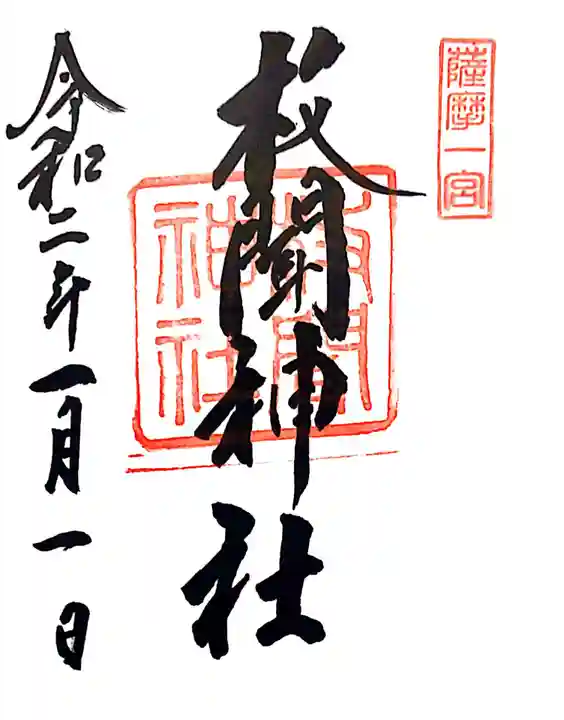 薩摩一宮
枚聞神社
枚聞神社
令和二年一月一日